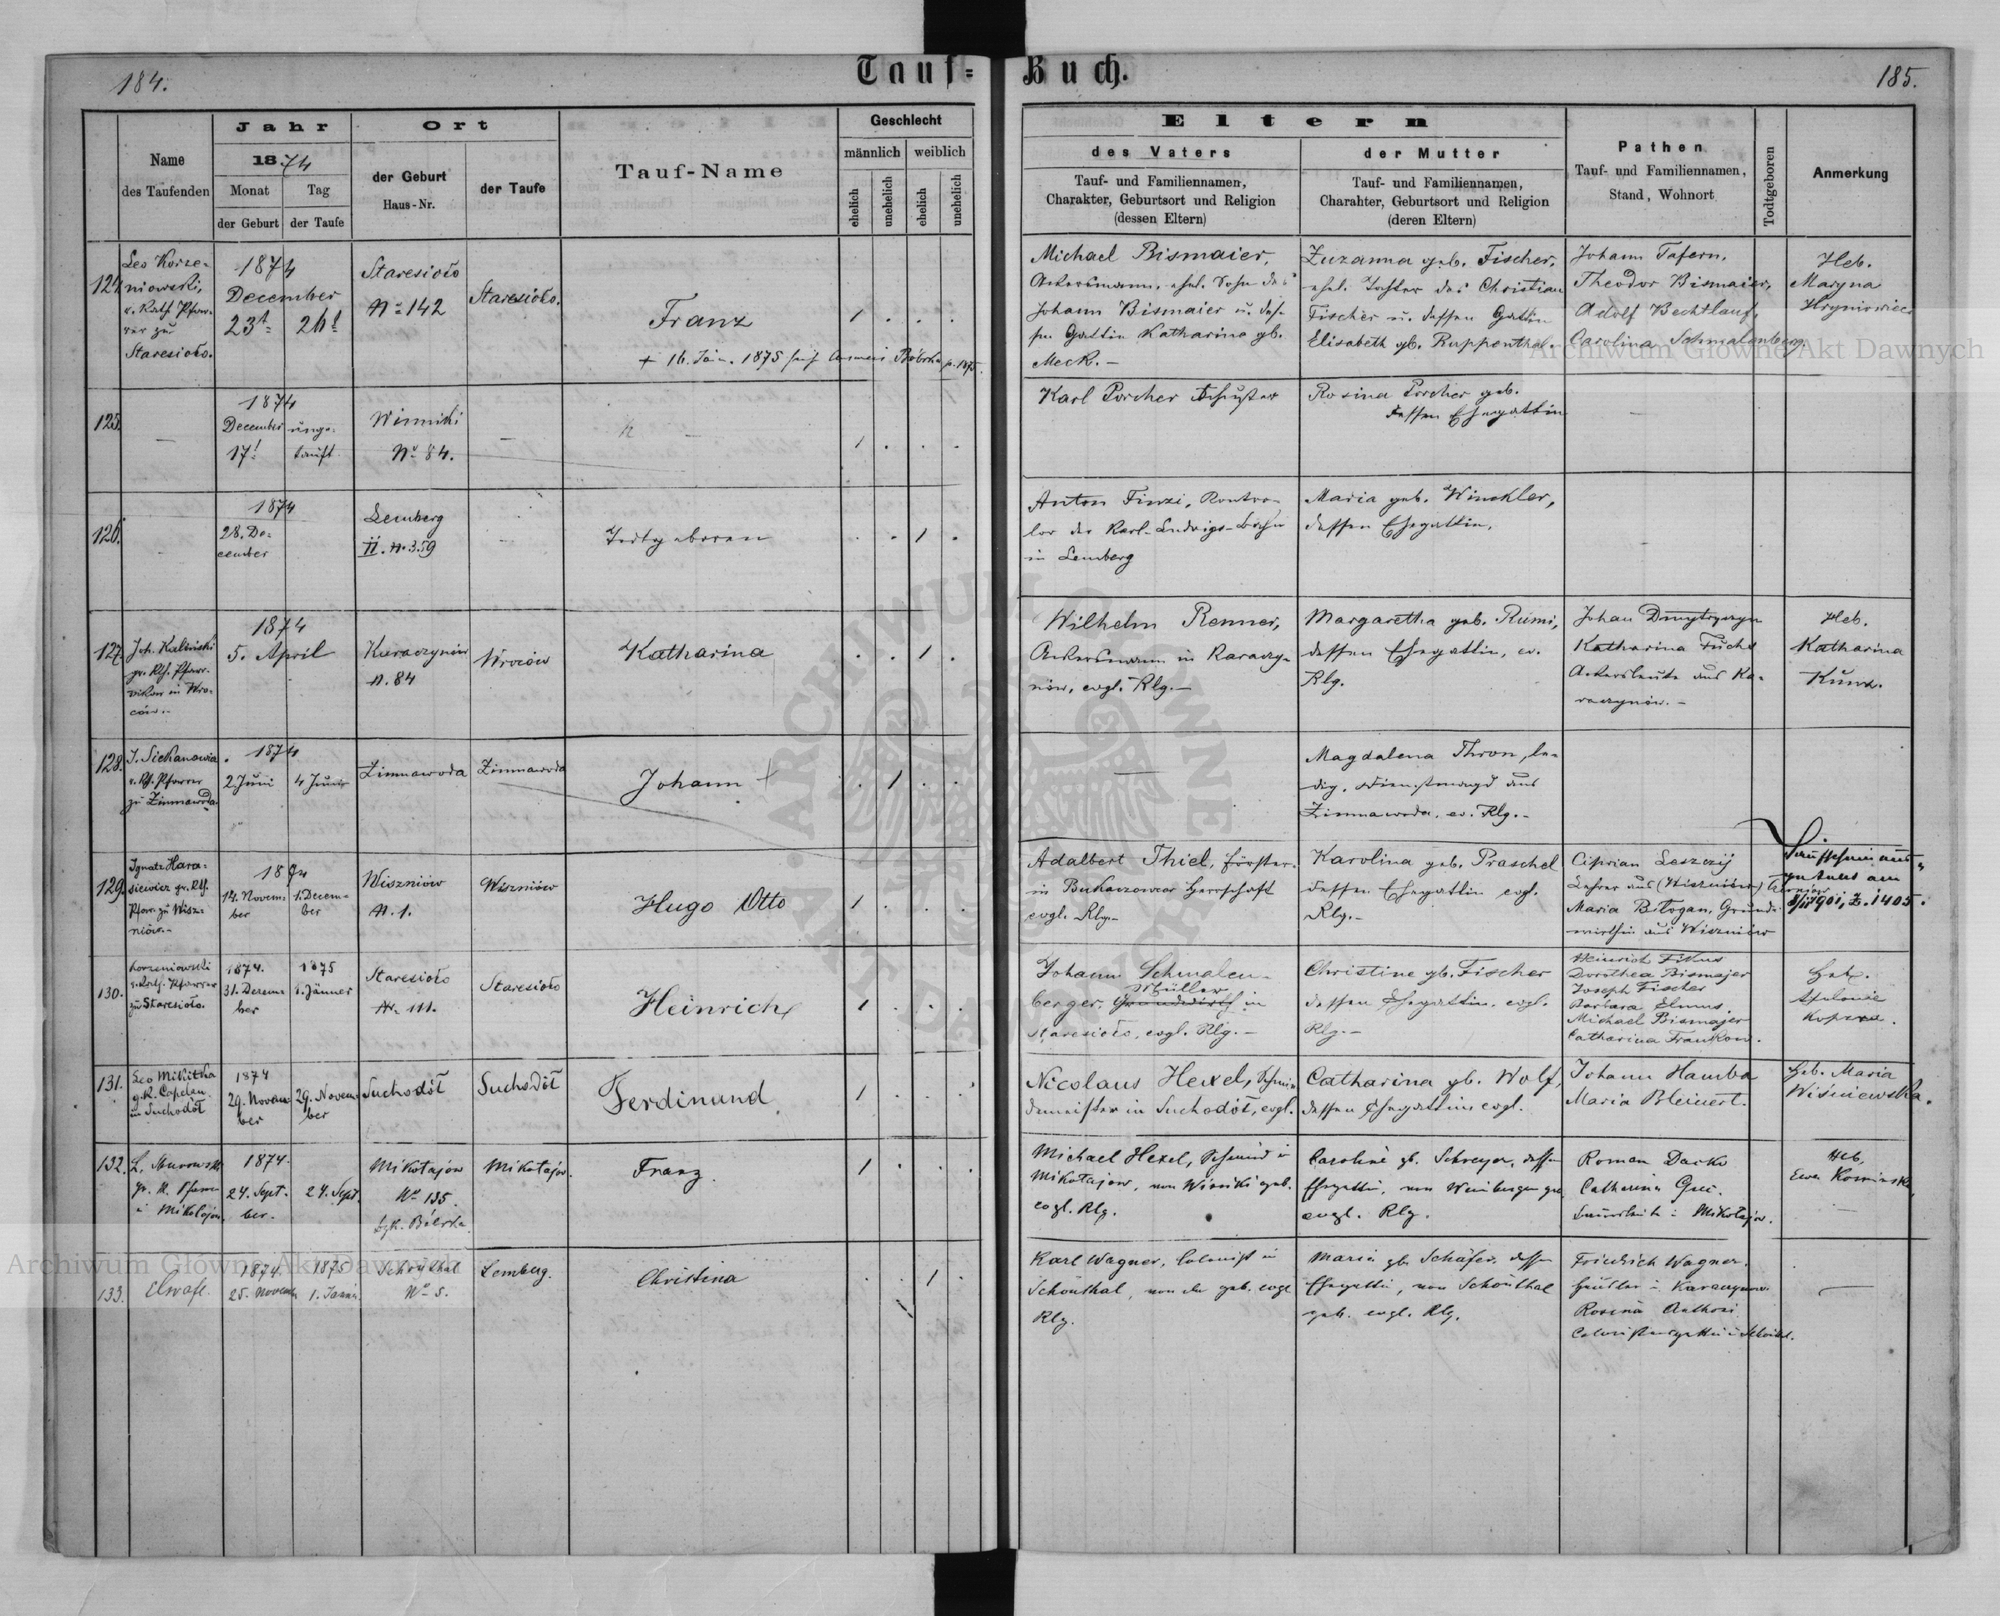 184.
Tauf=
Buch.
185.
Name
des Taufenden
Jahr
1874
Monat
Tag
der Geburt
der Taufe
Ort
der Geburt
Haus-Nr.
der Taufe
Tauf-Name
Geschlecht
männlich
weiblich
ehelich
unehelich
ehelich
unehelich
Eltern
des Vaters
Tauf- und Familiennamen,
Charakter, Geburtsort und Religion
(dessen Eltern)
der Mutter
Tauf- und Familiennamen,
Charahter, Geburtsort und Religion
(deren Eltern)
Pathen
Tauf- und Familiennamen,
Stand, Wohnort
Todtgeboren
Anmerkung
124.
Leo Korze-
niowski,
r. Kath. Pfar-
rer zu
Staresioło.
1874
December
23t
26t
Staresioło
No 142
Staresioło.
Franz
+ 16. Jän. 1875
1
Michael Bismaier,
Ackersmann, ehel. Sohn des
Johann Bismaier u. des-
sen Gattin Katharina gb.
Meck. –
Zuzanna geb. Fischer,
ehel. Tochter des Christian
Fischer u. dessen Gattin
Elisabeth gb. Ruppenthal.
Johann Tafern,
Theodor Bismaier,
Adolf Bechtlauf,
Carolina Schmalenberg.
Heb.
Maryna
Hryniowiec
125.
1874
December
unge-
17t
tauft
Winniki
No 84.
1
Karl Porcher Schuster
Rosina Porcher geb.
dessen Ehegattin
126.
1874
28. De-
cember
Lemberg
II. N. 359
Todtgeboren
1
Anton Finzi, Kontro-
lor der Karl-Ludwigs-Bahn
in Lemberg
Maria geb. Winckler,
dessen Ehegattin.
127.
Joh. Kaliński
gr. Kth. Pfarr-
vikar in Wro-
ców.
1874
5. April
Karaczynów
N. 84
Wroców
Katharina
1
Wilhelm Renner,
Ackersmann in Karaczy-
nów, evgl. Rlg. –
Margaretha geb. Rumi,
dessen Ehegattin, ev.
Rlg.
Johan Dmytryszyn
Katharina Fuchs
Ackersleute aus Ka-
raczynów. –
Heb.
Katharina
Kunz.
128.
Pfarrer
zu Zimnawoda
1874
2 Juni
4 Juni
Zimnawoda
Zimnawoda
Johann +
1
Magdalena Thron, le-
dig, Dienstmagd aus
Zimnawoda, ev. Rlg. –
129.
Ignatz Hara-
siewicz gr. Kth.
Pfarr. zu Wisz-
niów. –
1874
14. Novem-
ber
1. Decem-
ber
Wiszniów
N. 1.
Wiszniów
Hugo Otto
1
Adalbert Thiel, Förster
in Bukaczowcer Herrschaft
evgl. Rlg. –
Karolina geb. Praschel
dessen Ehegattin evgl.
Rlg. –
Ciprian Leszczij
Lehrer aus (Wiszniów)
Maria Bitogan, Grund-
wirthin aus Wiszniów
Taufschein aus-
1901, Z. 1405.
130.
Korzeniowski
r. Kath. Pfarrer
zu Staresioło.
1874.
31. Decem-
ber
1875
1. Jänner
Staresioło
Nr. 111.
Staresioło
Heinrich
1
Johann Schmalen-
Müller
berger, Grundwirth in
Staresioło, evgl. Rlg. –
Christine gb. Fischer
dessen Ehegattin, evgl.
Rlg. –
Heinrich Fikus
Dorothea Bismajer
Joseph Fischer
Barbara Elmus
Michael Bismajer
Catharina Frankow.
Heb.
Apolonie
131.
Leo Mikitka
g. K. Capelan
in Suchodół
1874
29. Novem-
ber
29. Novem-
ber
Suchodół
Suchodół
Ferdinand
1
Nicolaus Hexel, Schmie-
demeister in Suchodół, evgl.
Catharina gb. Wolf,
dessen Ehegattin evgl.
Johann Hamba
Maria Bleinert.
Heb. Maria
Wiśniewska.
132.
1874.
24. Sept.
ber.
24. Sept.
Mikołajów
No 135.
Mikołajów
Franz
1
Michael Hexel, Schmied in
Mikołajow, von Winniki geb.
evgl. Rlg.
Caroline gb. Schreyer, dessen
Ehegattin, von Weinbergen geb.
evgl. Rlg.
Roman Dacko
Catharina
Mikołajow.
Heb.
Ewa
133.
1874.
25. November
1875
1. Jänner
Schönthal
No 5.
Lemberg.
Christina
1
Karl Wagner, Colonist in
Schönthal, von da geb. evgl
Rlg.
Maria gb. Schäfer, dessen
Ehegattin, von Schönthal
geb. evgl. Rlg.
Friedrich Wagner
Rosina
Archiwum Główne Akt Dawnych
Archiwum Główne Akt Dawnych
ARCHIWUM GŁÓWNE AKT DAWNYCH